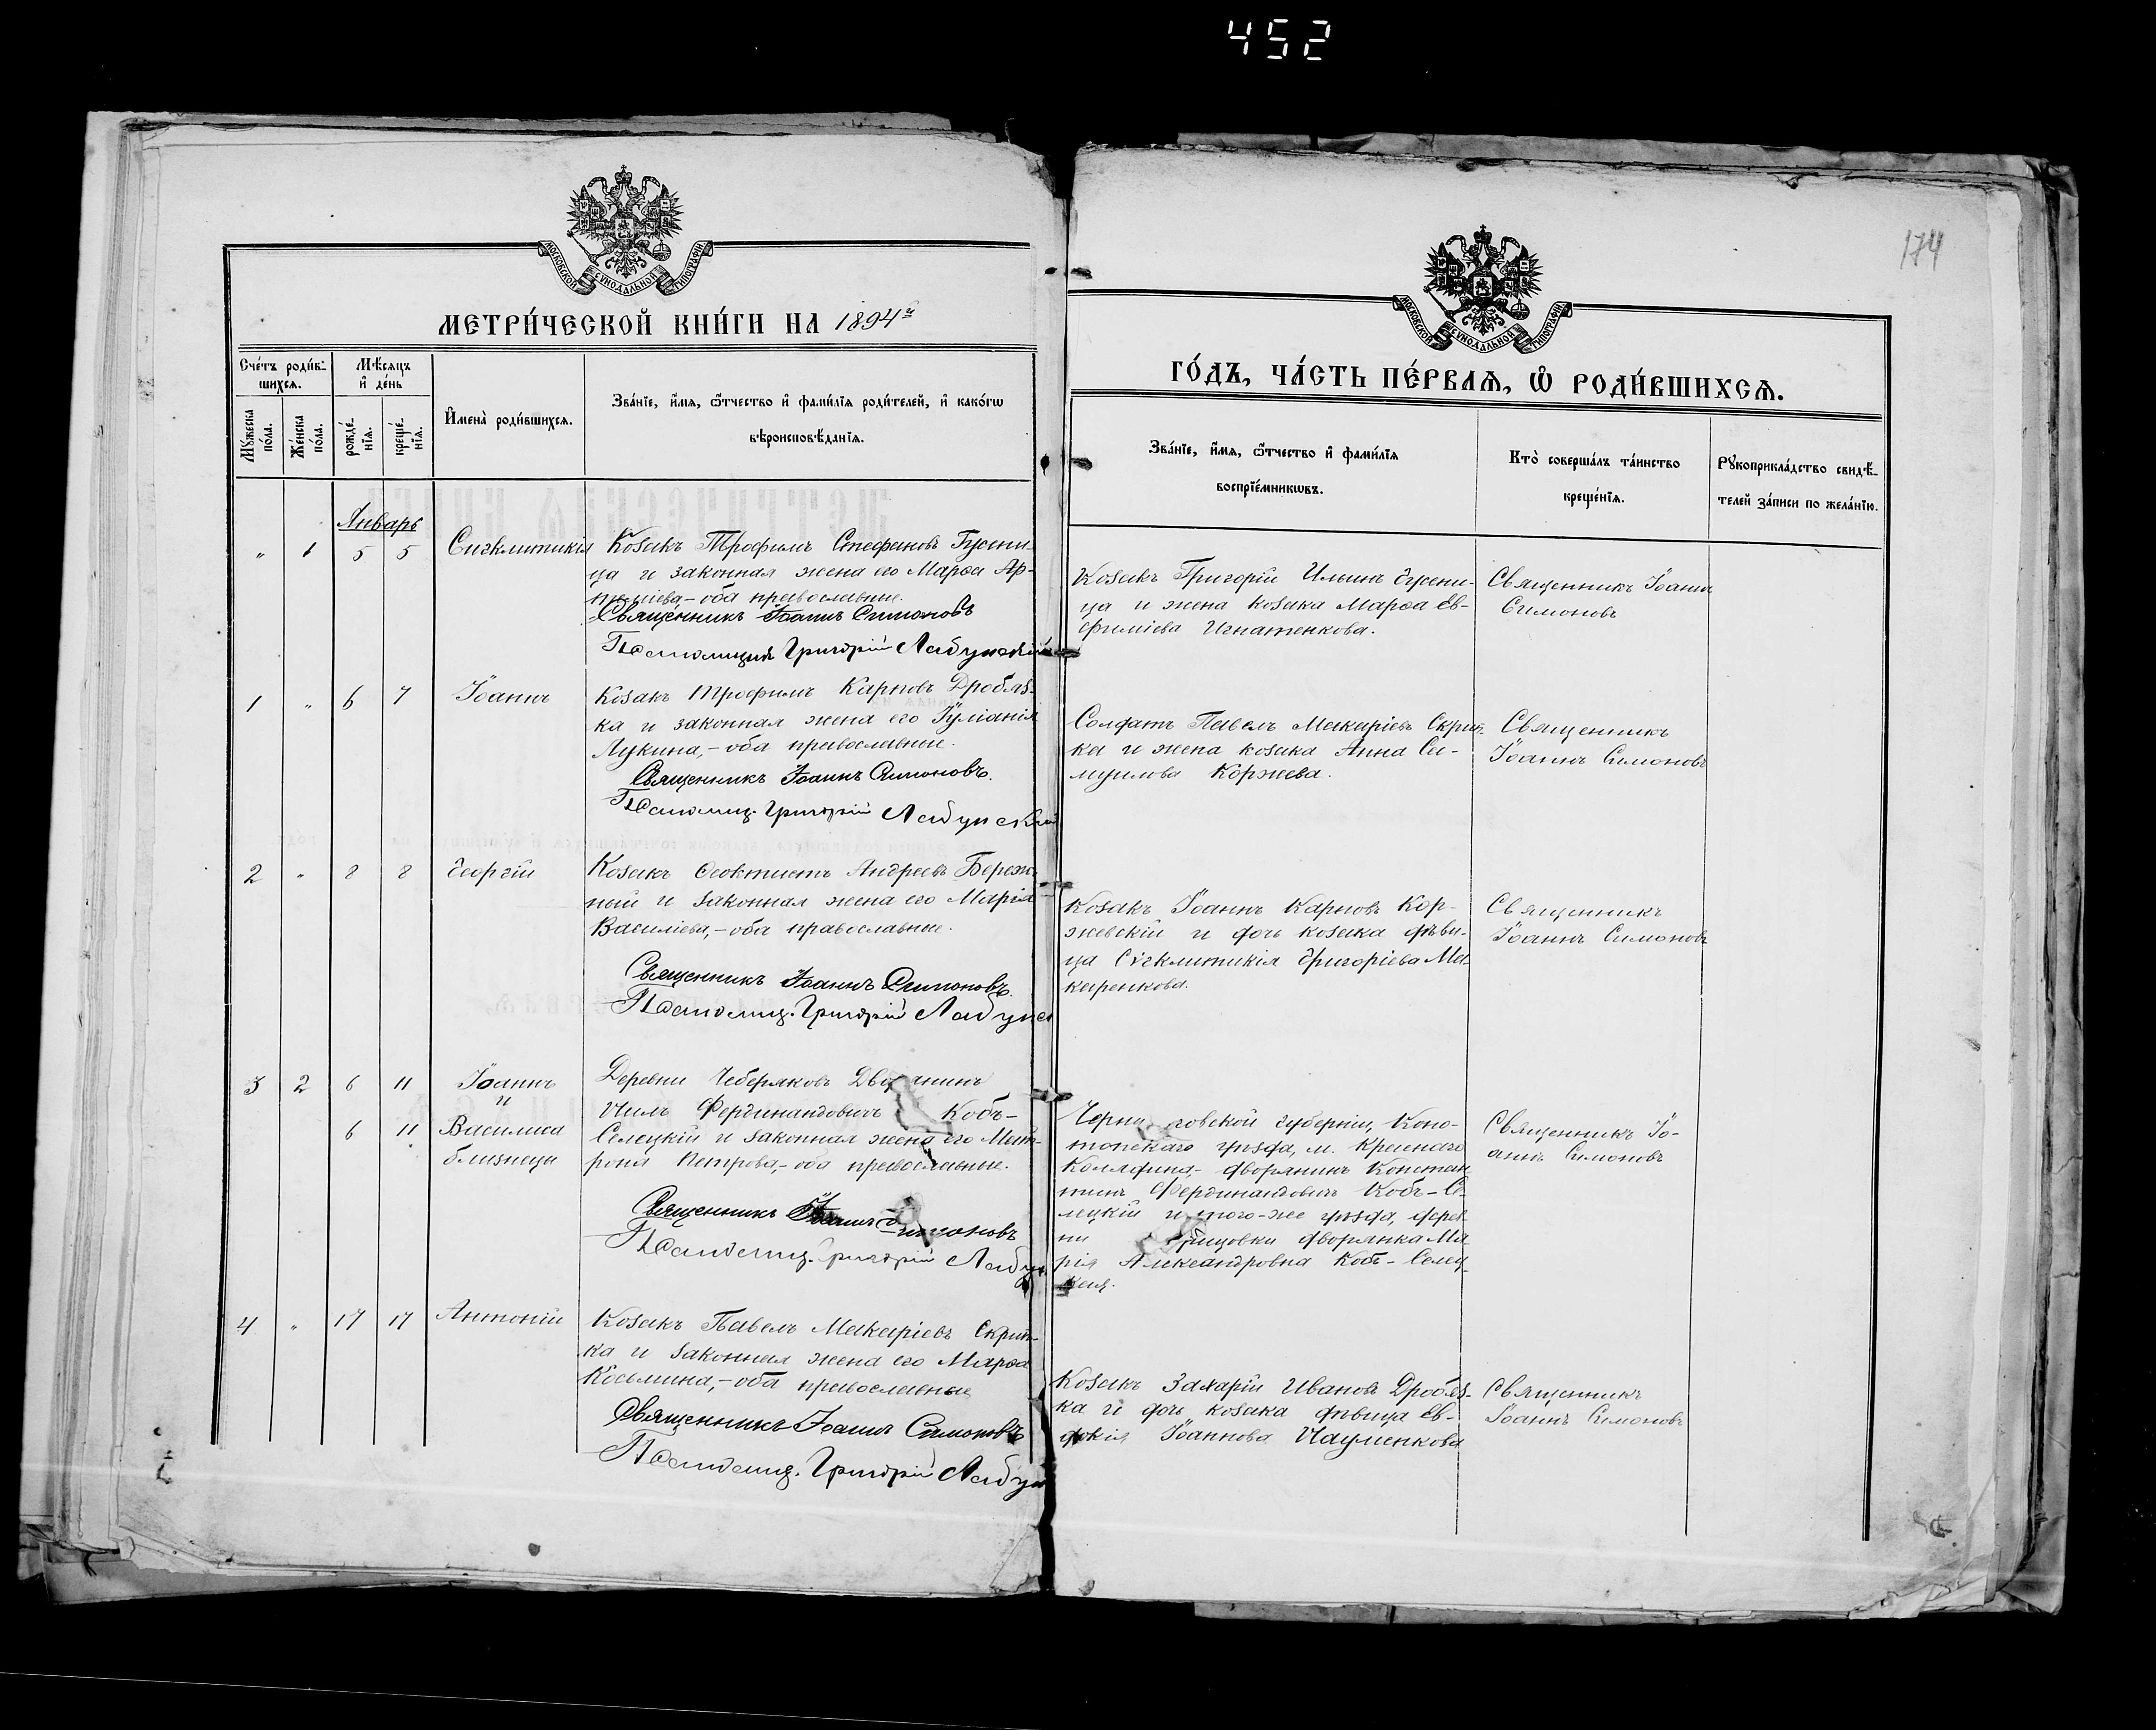 452
174
МОСКОВСКОЙ СУНОДАЛЬНОЙ ТИПОГРАФІИ
МЕТРИ́ЧЕСКОЙ КНИ́ГИ НА 1894й
Сче́тъ роди́в-
шихсѧ.
Мѣ́сѧцъ
и҆ де́нь
Мꙋ́жеска
по́ла.
Же́нска
по́ла.
рожде́-
нїѧ.
креще́-
нїѧ.
И҆мена̀ роди́вшихсѧ.
Зва́нїе, и҆́мѧ, ѻ҆́тчество и҆ фами́лїѧ роди́телей, и҆ како́гѡ
вѣроисповѣ́данїѧ.
Январь
" 1 5 5 Сигклитикія
Козакъ Трофимъ Стефановъ Гусени-
ца и законная жена его Марѳа Ар-
темiева – оба православные.
Священникъ Іоаннъ Симоновъ
Псаломщикъ Григорій Лабунскій
1 " 6 7 Іоаннъ
Козакъ Трофимъ Карповъ Дробяз-
ка и законная жена его Іуліанія
Лукина, – оба православные.
Священникъ Іоаннъ Симоновъ.
Псаломщ. Григорій Лабунскій
2 " 8 8 Георгій
Козакъ Ѳеоктистъ Андреевъ Береж-
ный и законная жена его Марія
Василіева, – оба православные.
Священникъ Іоаннъ Симоновъ.
Псаломщ. Григорій Лабунс
3 2 6 11 Іоаннъ
и
6 11 Василиса
близнецы
Деревни Чеберяковъ Дворянинъ
Фердинандовичъ Кобъ-
Селецкій и законная жена его Мат-
рона Петрова, – оба православные.
Священникъ Іоаннъ Симоновъ
Псаломщ. Григорій Лабун
4 " 17 17 Антоній
Козакъ Павелъ Макаріевъ Скрип-
ка и законная жена его Марѳа
Косьмина, – оба православные
Священникъ Іоаннъ Симоновъ
Псаломщ. Григорій Лабун
МОСКОВСКОЙ СУНОДАЛЬНОЙ ТИПОГРАФІИ
ГО́ДЪ, ЧА́СТЬ ПЕ́РВАѦ, Ѡ҆ РОДИ́ВШИХСѦ.
Зва́нїе, и҆́мѧ, ѻ҆́тчество и҆ фами́лїѧ
воспрїе́мникѡвъ.
Кто̀ соверша́лъ та́инство
креще́нїѧ.
Рꙋкоприкла́дство свидѣ́-
телей за́писи по жела́нїю.
Козакъ Григорій Ильинъ Гусени-
ца и жена козака Марѳа Ев-
фиміева Игнатенкова.
Священникъ Іоаннъ
Симоновъ
Солдатъ Павелъ Макаріевъ Скрип-
ка и жена козака Анна Са-
муилова Коржева.
Священникъ
Іоаннъ Симоновъ
Козакъ Іоаннъ Карповъ Кор-
жевскій и дочь козака дѣви-
ца Сѵгклитикія Григоріева Ма-
каренкова.
Священникъ
Іоаннъ Симоновъ
Черниговской губерніи, Коно-
топскаго уѣзда, м. Краснаго
Колядина, – дворянинъ Констан
тинъ Фердинандовичъ Кобъ-Се-
лецкій и того-же уѣзда, дерев
ни дворянка Ма
рія Александровна Кобъ-Селец-
кая.
Священникъ Іо-
аннъ Симоновъ
Козакъ Захарій Ивановъ Дробяз-
ка и дочь козака дѣвица Ев-
докія Іоаннова Науменкова
Священникъ
Іоаннъ Симоновъ